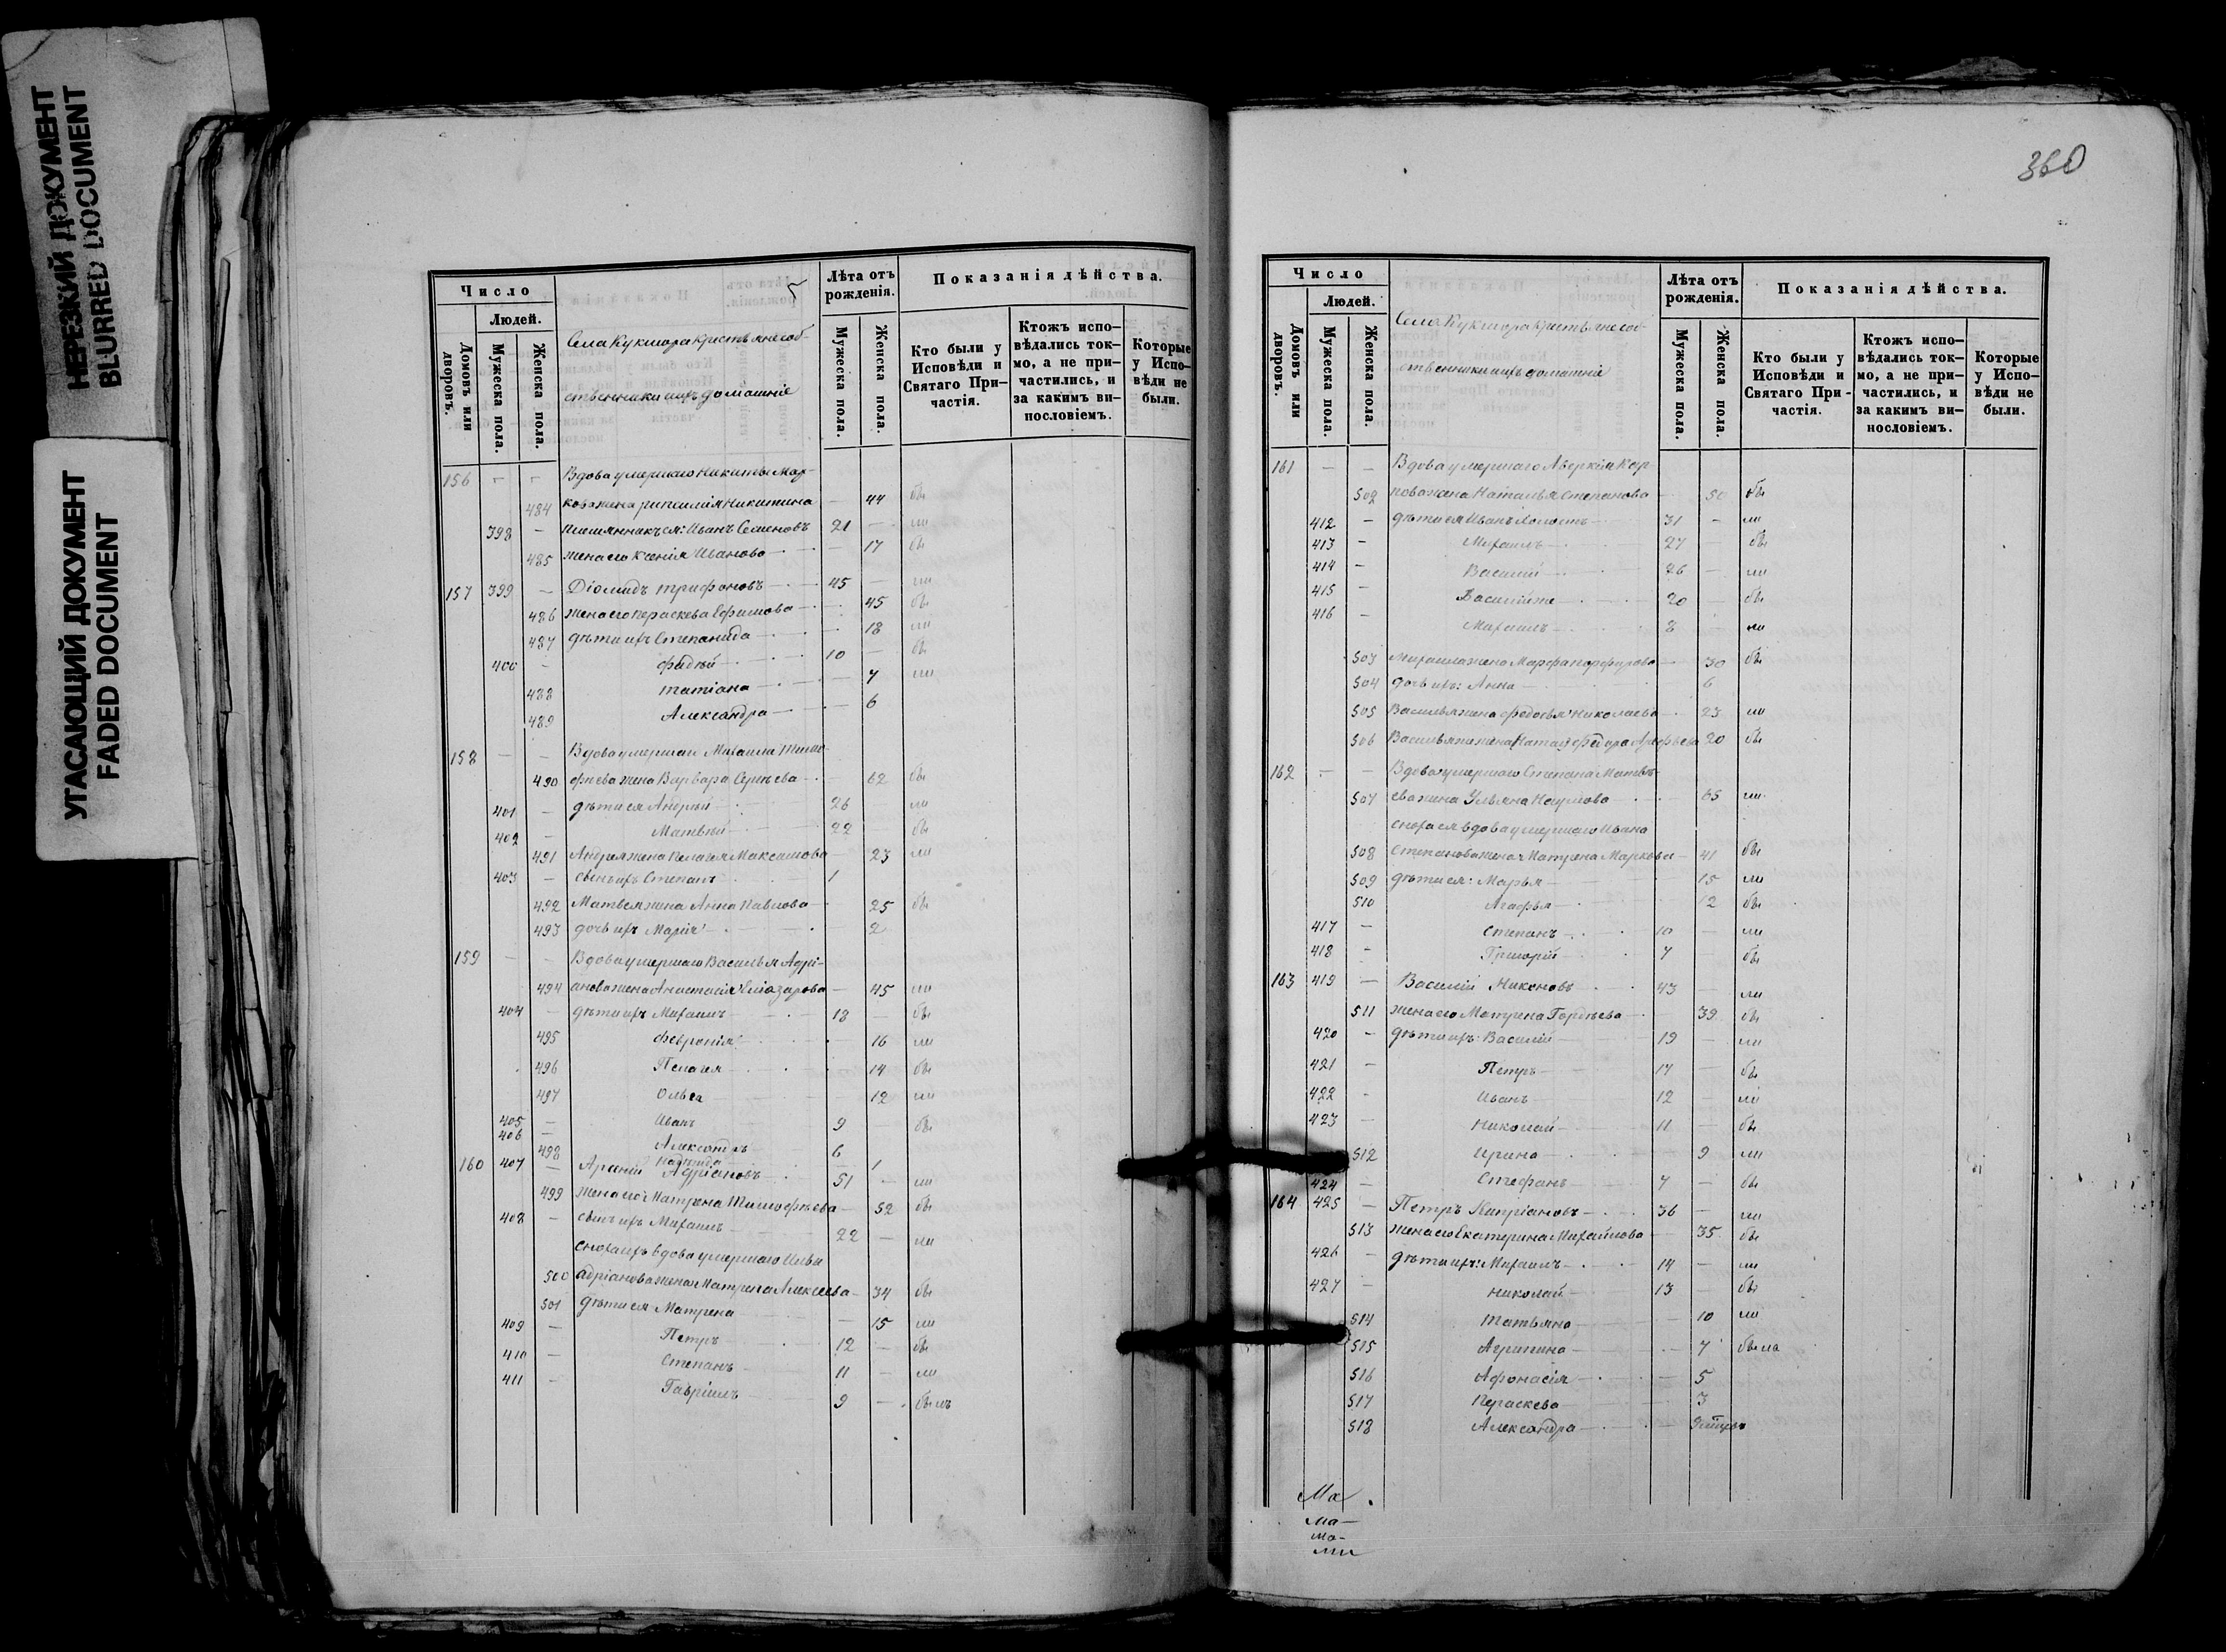 НЕРЕЗКИЙ ДОКУМЕНТ
BLURRED DOCUMENT
УГАСАЮЩИЙ ДОКУМЕНТ
FADED DOCUMENT
Число
Людей.
Домовъ или дворовъ.
Мужеска пола.
Женска пола.
Села Кукмора крестьяне соб-
ственники и ихъ домашніе
Лѣта отъ рожденія.
Мужеска пола.
Женска пола.
Показанія дѣйства.
Кто были у Исповѣди и Святаго При-частія.
Ктожъ испо-вѣдались ток-мо, а не при-частились, и за какимъ ви-нословіемъ.
Которые у Испо-вѣди не были.
156 — — Вдова умершаго Никиты Мар-
484 кова жена Никитина — 44 бы
398 — племянникъ ея: Иванъ Семеновъ 21 — ли
485 жена его Ксенія Иванова — 17 бы
157 399 — Діомидъ Трифоновъ 45 — ли
486 жена его Параскева Ефимова — 45 бы
487 дѣти ихъ Степанида — 18 ли
400 — Фадѣй 10 — бы
488 Татіана — 7 ли
489 Александра — 6
158 — — Вдова умершаго Михаила Тимо-
490 фѣева жена Варвара Сергѣева — 62 бы
401 — дѣти ея Андрей 26 ли
402 — Матвѣй 22 бы
491 Андрея жена Пелагея Максимова — 23 ли
403 — сынъ ихъ Степанъ 1
492 Матвея жена Анна Павлова — 25 бы
493 дочь ихъ Марія — 2
159 — — Вдова умершаго Василья Адрі-
494 анова жена Анастасія Еліазарова — 45 ли
404 — дѣти ихъ Михаилъ 18 — бы
495 Февронія 16 ли
496 Пелагея 14 бы
497 Ольга 12 ли
405 — Иванъ 9 бы
406 — Александръ 6
498 Надежда — 1
160 407 — Адріановъ 51 — ли
499 жена его Матрена Тимофѣева — 52 бы
408 — сынъ ихъ Михаилъ 22 — ли
сноха ихъ вдова умершаго Ильи
500 Адріанова жена Матрена Алексѣева — 34 бы
501 дѣти ея Матрена — 15 ли
409 — Петръ 12 — бы
410 — Степанъ 11 — ли
411 — Гавріилъ 9 — былъ
360
Число
Людей.
Домовъ или дворовъ.
Мужеска пола.
Женска пола.
Села Кукмора крестьяне соб-
ственники и ихъ домашніе
Лѣта отъ рожденія.
Мужеска пола.
Женска пола.
Показанія дѣйства.
Кто были у Исповѣди и Святаго При-частія.
Ктожъ испо-вѣдались ток-мо, а не при-частились, и за какимъ ви-нословіемъ.
Которые у Испо-вѣди не были.
161 — — Вдова умершаго Аверкія Кар-
502 пова жена Наталья Степанова — 50 бы
412 — дѣти ея Иванъ холостъ 31 — ли
413 — Михаилъ 27 — бы
414 — Василій 26 — ли
415 — Василій же 20 — бы
416 — Михаилъ 8 ли
503 Михаила жена Марфа Порфирова — 30 бы
504 дочь ихъ: Анна 6
505 Василья жена Федосья Николаева 23 ли
506 Василья жена 20 бы
162 — — Вдова умершаго Степана Матвѣ-
507 ева жена Ульяна Наумова 65 ли
сноха ея вдова умершаго Ивана
508 Степанова жена Матрена Маркова — 41 бы
509 дѣти ея: Марья 15 ли
510 Агафья 12 бы
417 — Степанъ 10 — ли
418 — Григорій 7 бы
163 419 — Василій Никоновъ 43 — ли
511 жена его Матрена Гордѣева 39 бы
420 — дѣти ихъ: Василій 19 — ли
421 — Петръ 17 — бы
422 — Иванъ 12 — ли
423 — Николай 11 — бы
512 Ирина 9 ли
424 — Стефанъ 7 — бы
164 425 — Петръ Кипріановъ 36 — ли
513 жена его Екатерина Михайлова 35 бы
426 — дѣти ихъ: Михаилъ 14 — ли
427 — Николай 13 — бы
514 Татьяна — 10 ли
515 Агрипина — 7 была
516 Афонасія — 5
517 Параскева 3
518 Александра
Ма
ма—
ма-